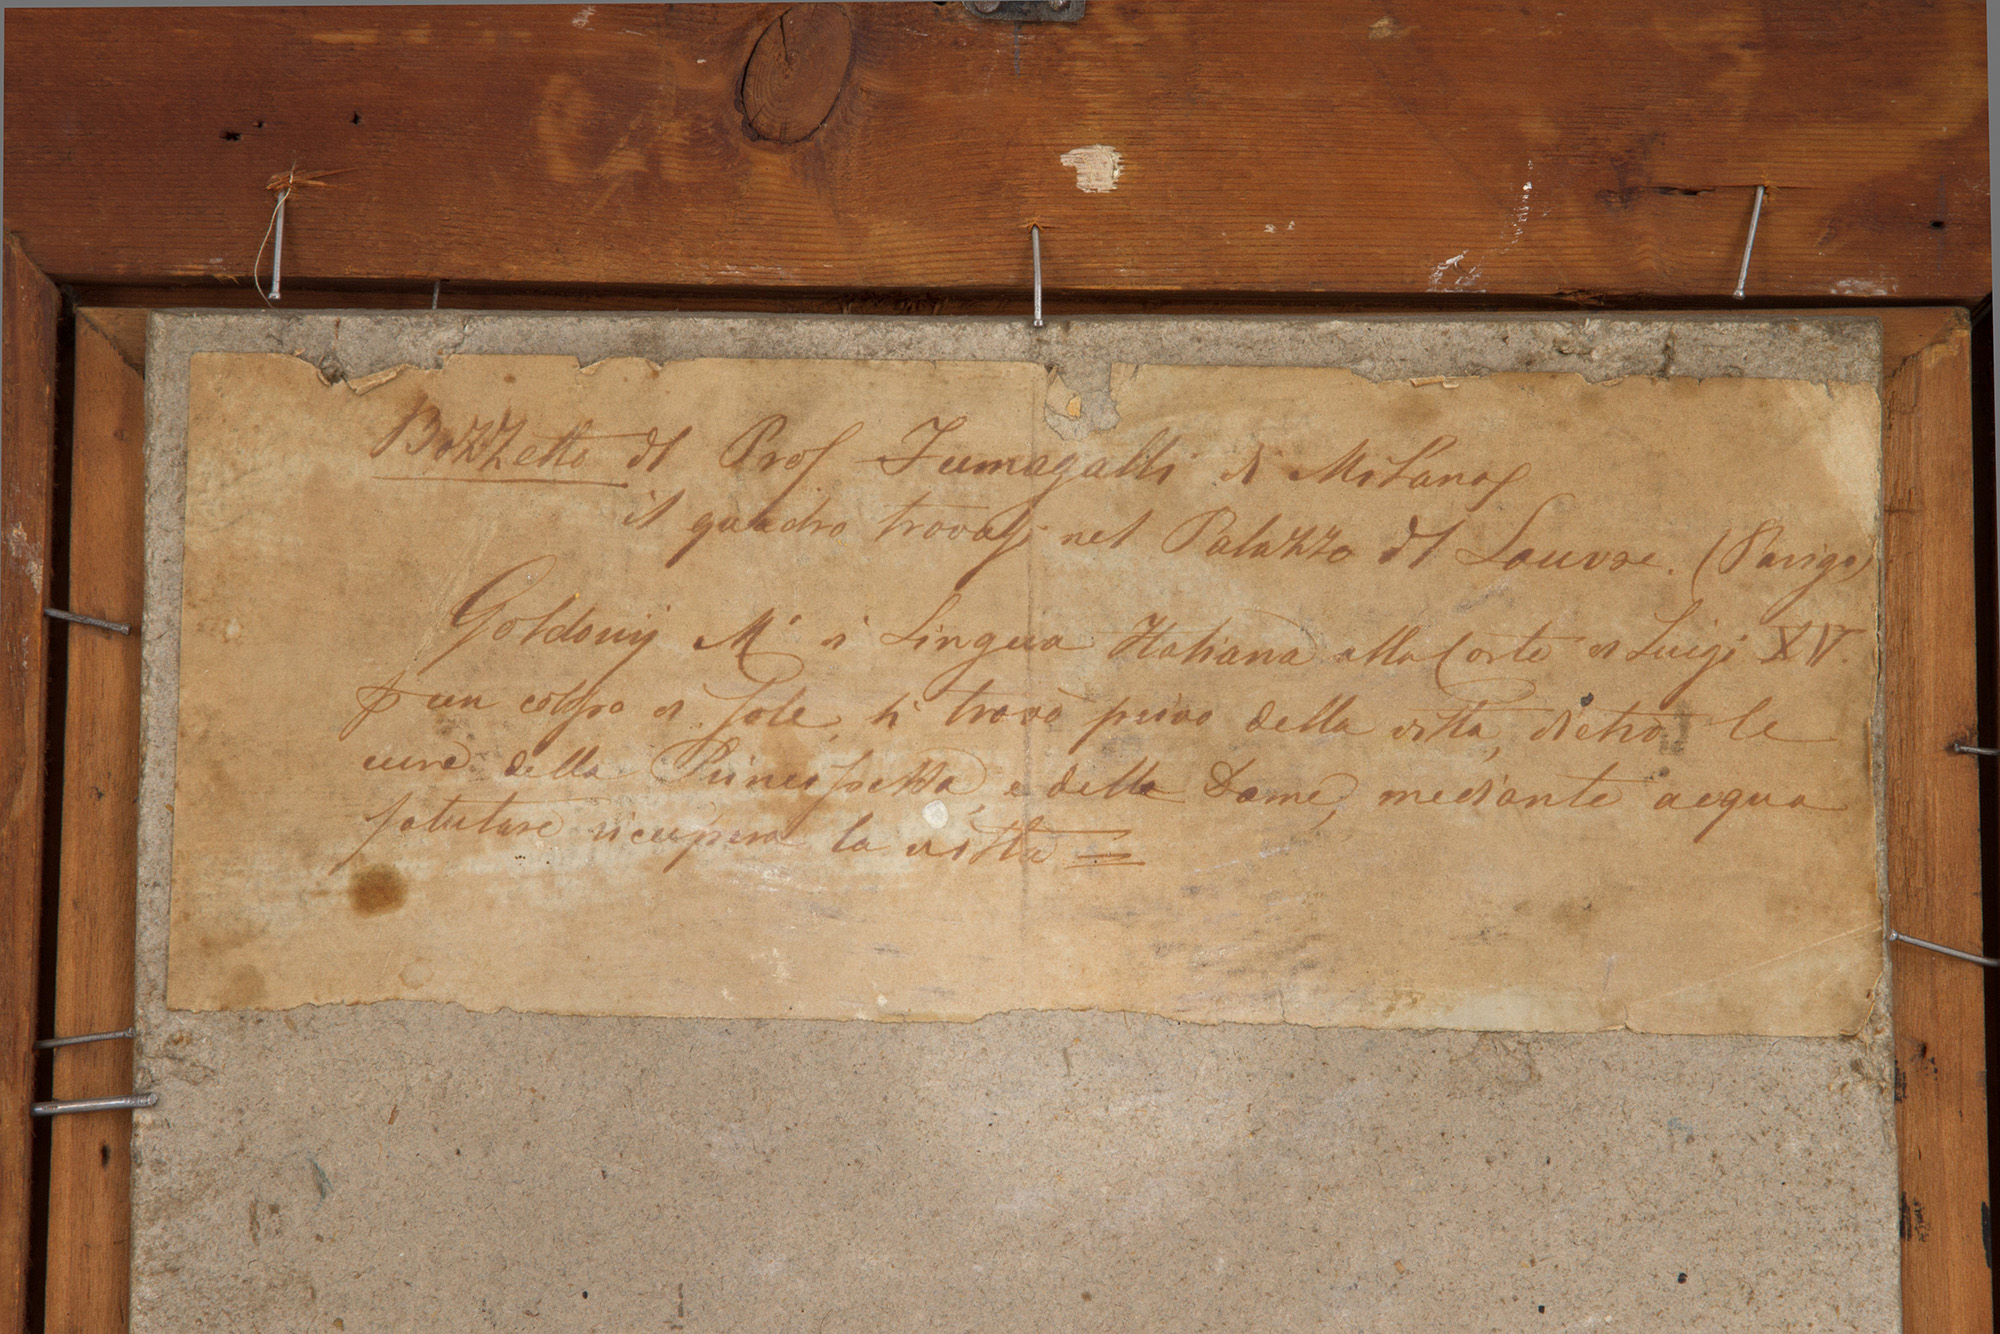 Bozzetto dl Prof Fumagalli di Milano
il quadro trovasi nel Palazzo dl Louvre. (Parigi)
Goldonij M.º di Lingua Italiana alla Corte di Luigi XV.
p un colpo di Sole, si trovò privo della vista, dietro le
cure della Principessa, e delle Dame, mediante acqua
salutare ricupera la vista =